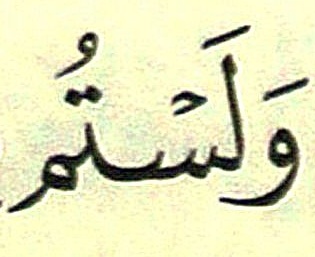 وَلَسْتُم